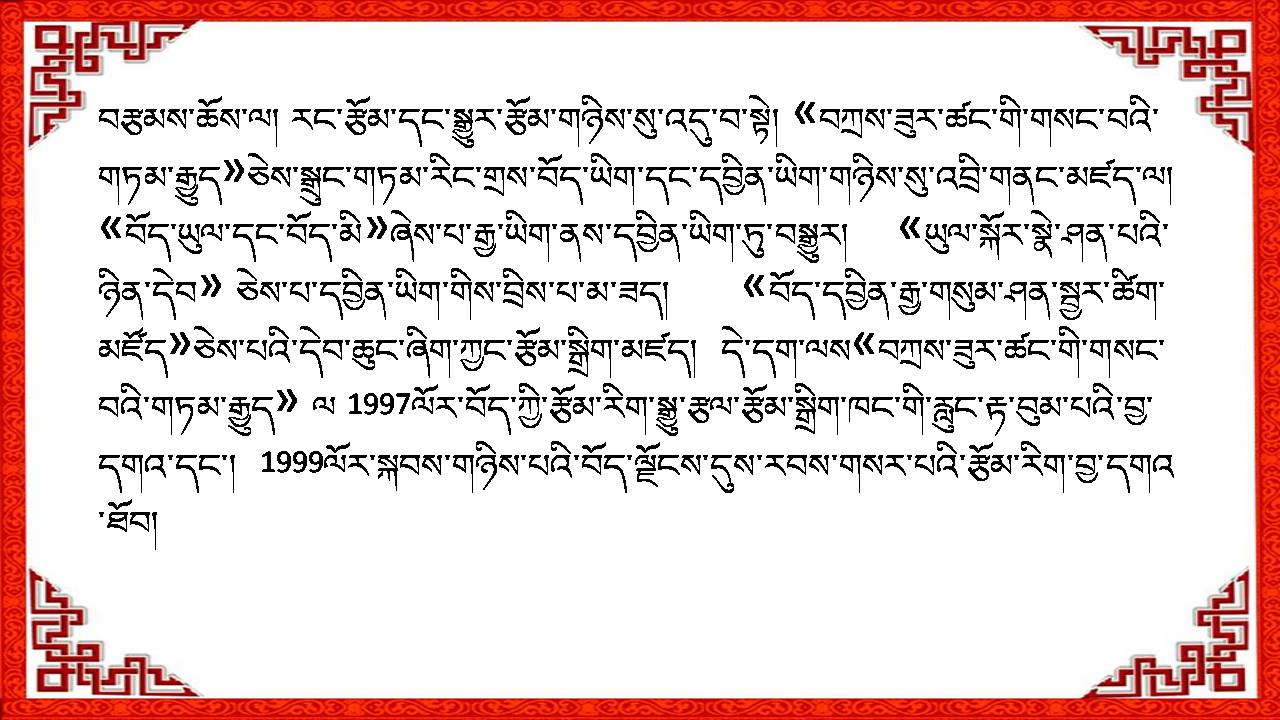 བརྩམས་ཆོས་ལ། རང་རྩོམ་དང་སྒྱུར་རྩོམ་གཉིས་སུ་འདུ་བ་སྟེ། «བཀྲས་ཟུར་ཚང་གི་གསང་བའི་
གཏམ་རྒྱུད»ཅེས་སྒྲུང་གཏམ་རིང་གྲས་བོད་ཡིག་དང་དབྱིན་ཡིག་གཉིས་སུ་འབྲི་གནང་མཛད་ལ།
«བོད་ཡུལ་དང་བོད་མི»ཞེས་པ་རྒྱ་ཡིག་ནས་དབྱིན་ཡིག་ཏུ་བསྒྱུར། «ཡུལ་སྐོར་སྣེ་ཤན་པའི་
ཉིན་དེབ» ཅེས་པ་དབྱིན་ཡིག་གིས་བྲིས་པ་མ་ཟད། «བོད་དབྱིན་རྒྱ་གསུམ་ཤན་སྦྱར་ཚིག་
མཛོད»ཅེས་པའི་དེབ་ཆུང་ཞིག་ཀྱང་རྩོམ་སྒྲིག་མཛད། དེ་དག་ལས«བཀྲས་ཟུར་ཚང་གི་གསང་
བའི་གཏམ་རྒྱུད» ལ 1997ལོར་བོད་ཀྱི་རྩོམ་རིག་སྒྱུ་རྩལ་རྩོམ་སྒྲིག་ཁང་གི་རླུང་རྟ་བུམ་པའི་བྱ་
དགའ་དང་། 1999ལོར་སྐབས་གཉིས་པའི་བོད་ལྗོངས་དུས་རབས་གསར་པའི་རྩོམ་རིག་བྱ་དགའ
་ཐོབ།